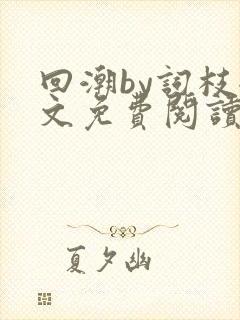 回潮by詞枝
文免費閱讀
夏夕幽